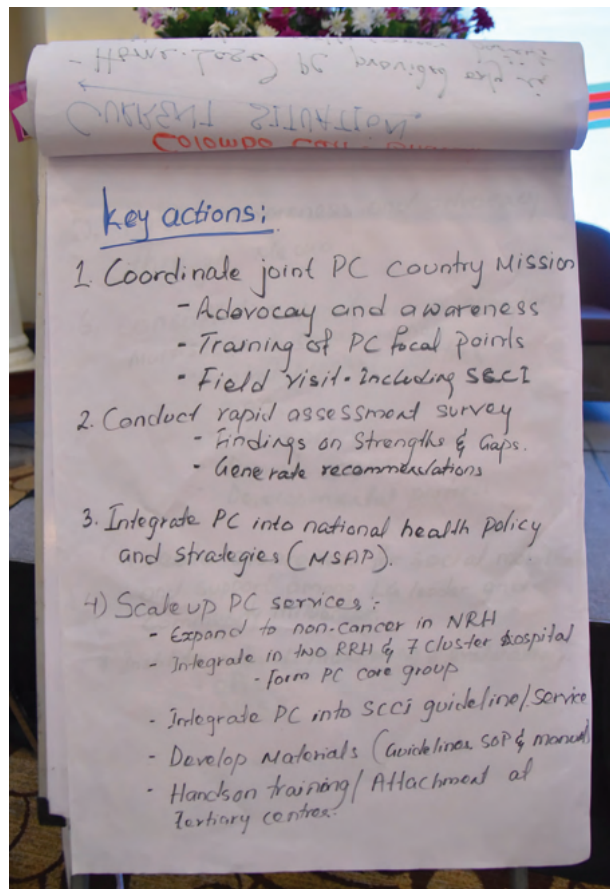 - Home-based PC provided only in
CURRENT SITUATION.
Colombo Call
Key actions:
1. Coordinate joint PC Country Mission
- Adovocay and awareness
- Training of PC focal points
- Field visit - Including SCCI
2. Conduct rapid assessment survey
- Findings on Strengths & Gaps.
- Generate recommendations
3. Integrate PC into national health policy
and strategies (MSAP).
4) Scale up PC services:
- Expand to non-cancer in NRH
- Integrate in two RRH & 7 cluster hospital
- form PC core group
- Integrate PC into SCCI guideline/service
- Develop Materials (Guidelines, SOP & manual)
- Hands on training/Attachment at
Tertiary centres.